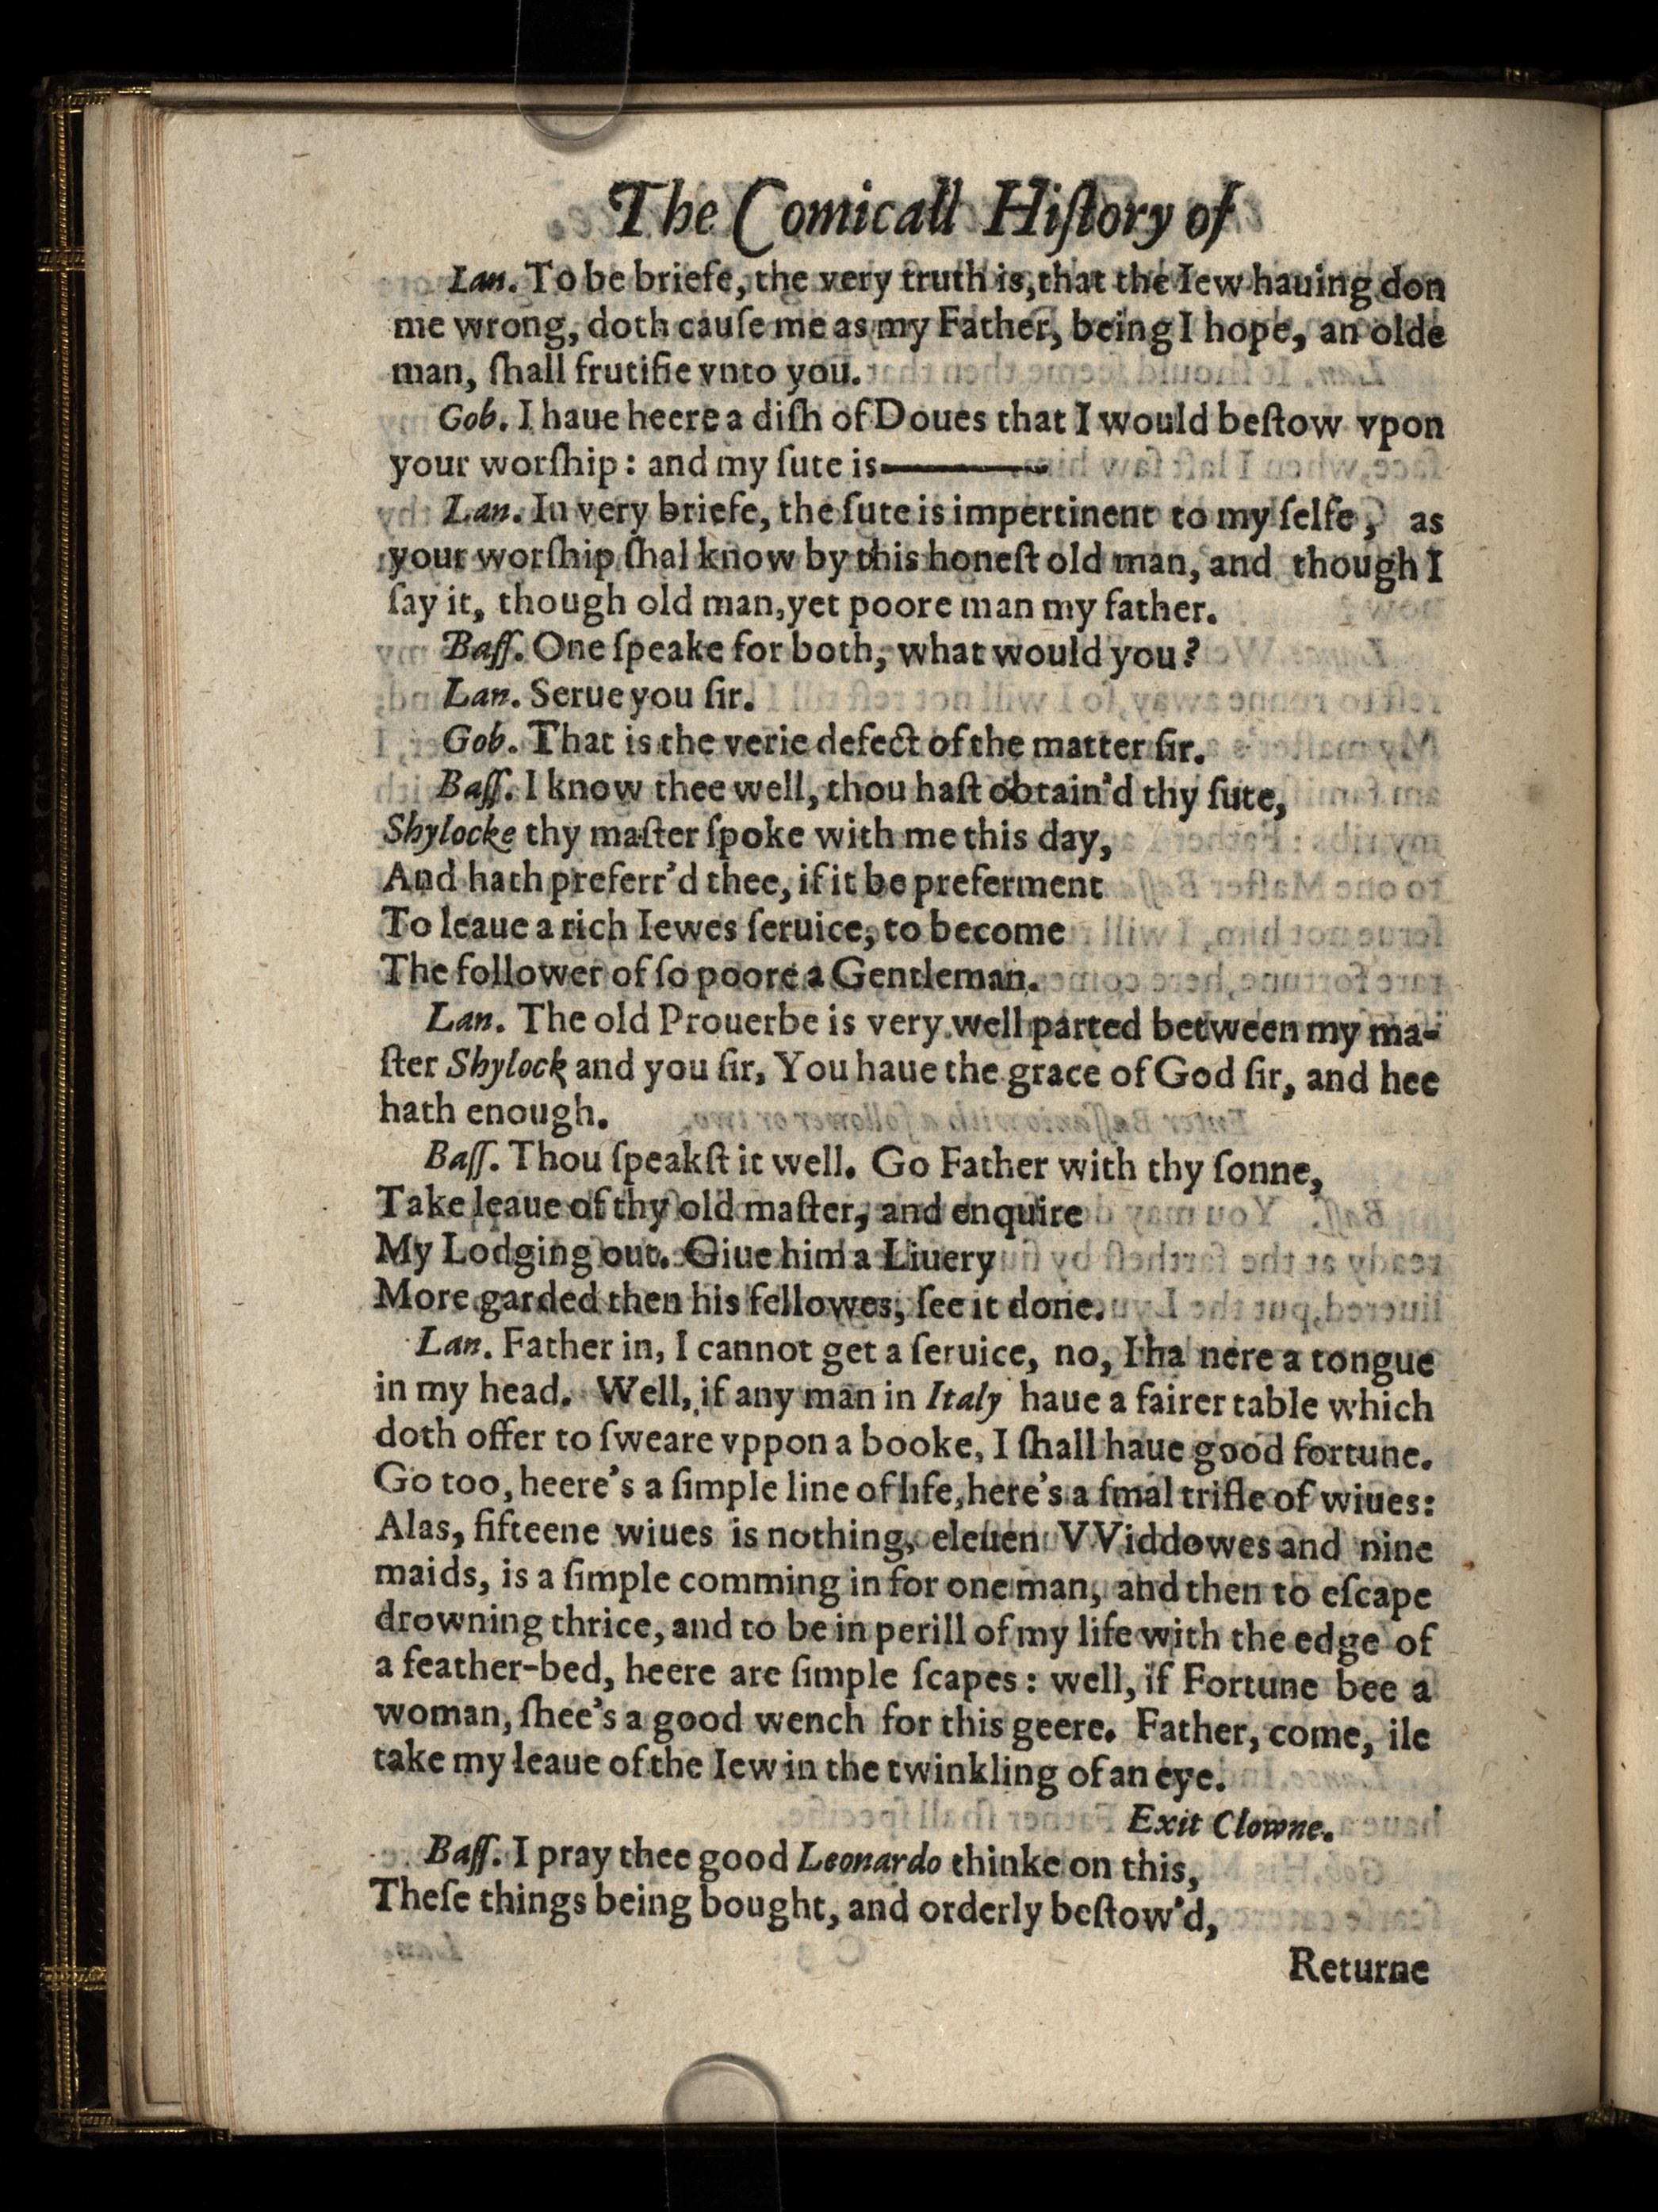 The Comicall Hiſtory of
Lan. To be briefe, the very truth is, that the Iew hauing don
me wrong, doth cauſe me as my Father, being I hope, an olde
man, ſhall frutifie vnto you.
Gob. I haue heere a diſh of Doues that I would beſtow vpon
your worſhip: and my ſute is———
Lan. In very briefe, the ſute is impertinent to my ſelfe, as
your worſhip ſhal know by this honeſt old man, and though I
ſay it, though old man, yet poore man my father.
Baſſ. One ſpeake for both, what would you?
Lan. Serue you ſir.
Gob. That is the verie defect of the matter ſir.
Baſſ. I know thee well, thou haſt obtain'd thy ſute,
Shylocke thy maſter ſpoke with me this day,
And hath preferr'd thee, if it be preferment
To leaue a rich Iewes ſeruice, to become
The follower of ſo poore a Gentleman.
Lan. The old Prouerbe is very well parted between my ma-
ſter Shylock and you ſir, You haue the grace of God ſir, and hee
hath enough.
Baſſ. Thou ſpeakſt it well. Go Father with thy ſonne,
Take leaue of thy old maſter, and enquire
My Lodging out. Giue him a Liuery
More garded then his fellowes, ſee it done.
Lan. Father in, I cannot get a ſeruice, no, I ha nere a tongue
in my head. Well, if any man in Italy haue a fairer table which
doth offer to ſweare vppon a booke, I ſhall haue good fortune.
Go too, heere's a ſimple line of life, here's a ſmal trifle of wiues:
Alas, fifteene wiues is nothing, eleuen VViddowes and nine
maids, is a ſimple comming in for one man, and then to eſcape
drowning thrice, and to be in perill of my life with the edge of
a feather-bed, heere are ſimple ſcapes: well, if Fortune bee a
woman, ſhee's a good wench for this geere. Father, come, ile
take my leaue of the Iew in the twinkling of an eye.
Exit Clowne.
Baſſ. I pray thee good Leonardo thinke on this,
Theſe things being bought, and orderly beſtow'd,
Returne